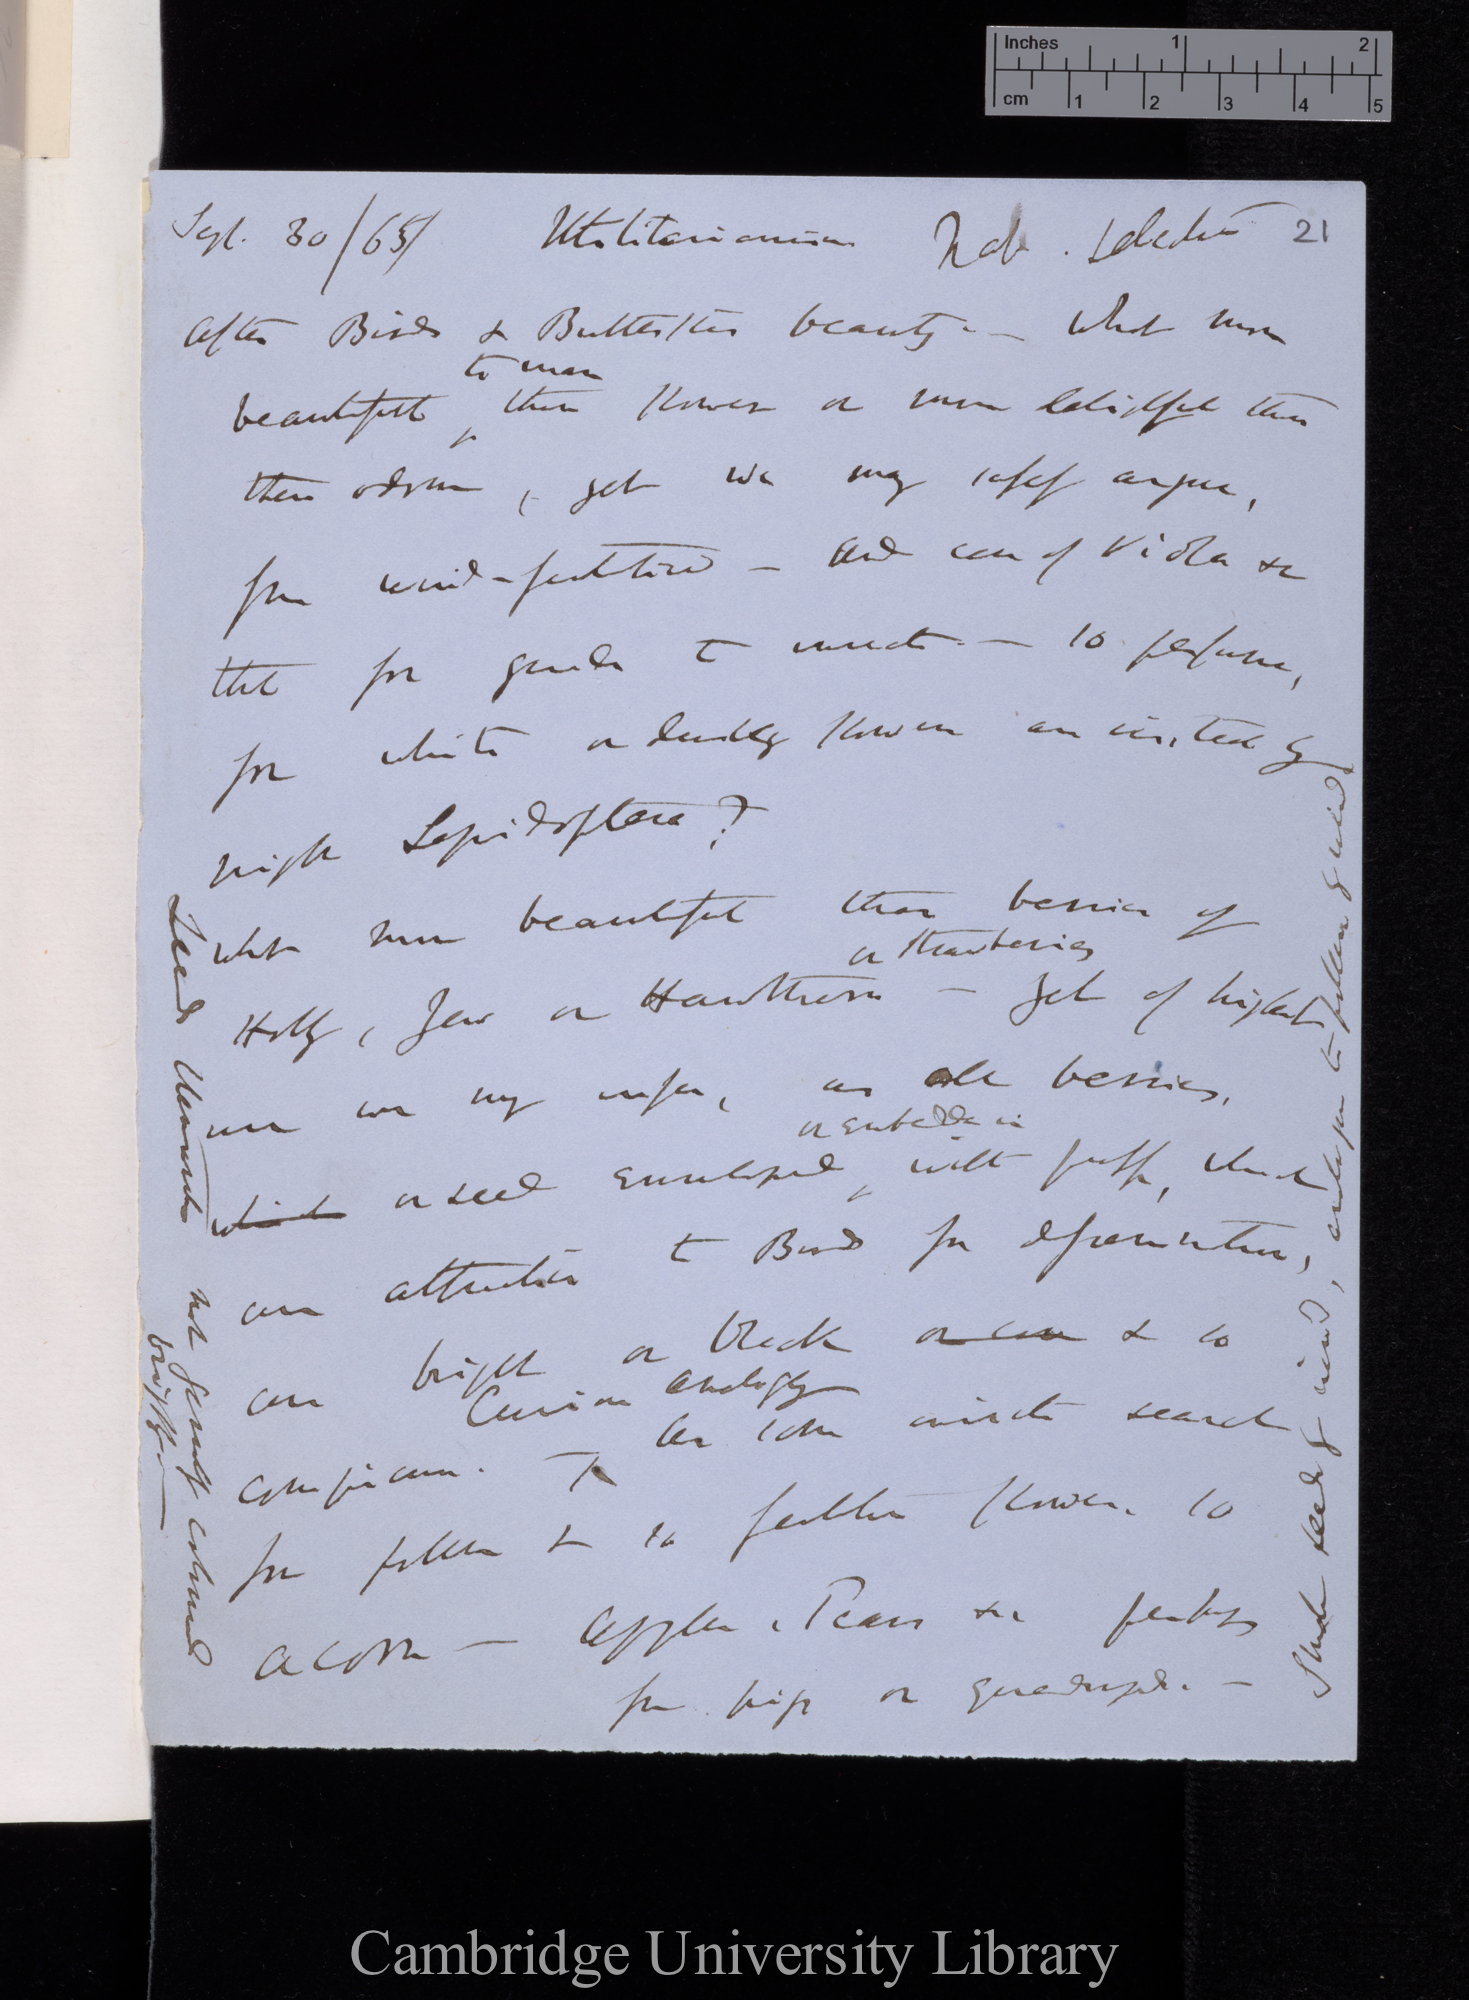 Inches 1 2
cm 1 2 3 4 5
Sept. 30/65/ Utilitarianism Nat. Selection 21
After Birds & Butterflies beauty. — What more
to man
beautiful than flowers or more delightful than
their odour, yet we may safely argue,
from wind-fertilised — and case of Viola &c
that for guide to insects. — so perfume,
for white or dusky flowers are visited by
night Lepidoptera?
What more beautiful than berries of
or Strawberries
Holly, Yew or Hawthorn — yet of highest
use we may infer, as all berries,
or embedded in
which or seed enveloped with pulp, which
are attractive to Birds for dissemination,
are bright or black or are & so
Curious analogy
conspicuous. As some insects search
for pollen & so fertilise flowers. So
acorn — Apples, Pears &c perhaps
for pigs or quadrupeds. —
Seeds not generally coloured
brightly. —
seeds & wind, analogous to pollen & wind
Cambridge University Library